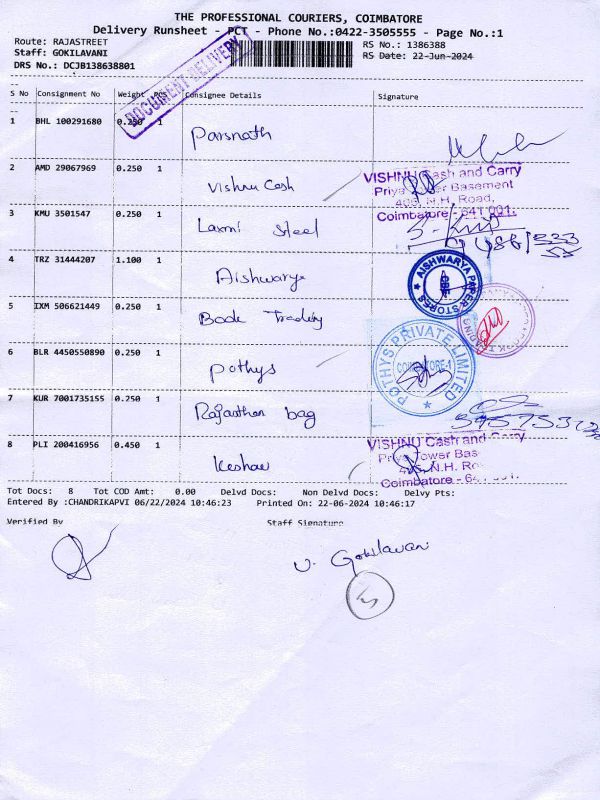 THE PROFESSIONAL COURIERS, COIMBATORE
Delivery Runsheet - PCT - Phone No.:0422-3505555 - Page No.:1
Route: RAJASTREET
RS No.: 1386388
Staff: GOKILAVANI
RS Date: 22-Jun-2024
DRS No.: DCJB138638801
DOCUMENT DELIVERY
S No Consignment No Weight PCS Consignee Details Signature
1 BHL 100291680 0.250 1 Parsnath
2 AMD 29067969 0.250 1 Vishnu Cash
VISHNU Cash and Carry
Priya Tower Basement
406, N.H. Road,
Coimbatore - 641 001.
3 KMU 3501547 0.250 1 Laxmi Steel
4 TRZ 31444207 1.100 1 Aishwarya
AISHWARYA PAPER STORES
CBE
5 IXM 506621449 0.250 1 Book Trading
6 BLR 4450550890 0.250 1 Pothys
POTHYS PRIVATE LIMITED
COIMBATORE-1
7 KUR 7001735155 0.250 1 Rajasthan bag
8 PLI 200416956 0.450 1 Keshav
VISHNU Cash and Carry
Priya Tower Bas
N.H. Ro
Coimbatore - 64
Tot Docs: 8 Tot COD Amt: 0.00 Delvd Docs: Non Delvd Docs: Delvy Pts:
Entered By :CHANDRIKAPVI 06/22/2024 10:46:23 Printed On: 22-06-2024 10:46:17
Verified By Staff Signature
V. Gokilavani